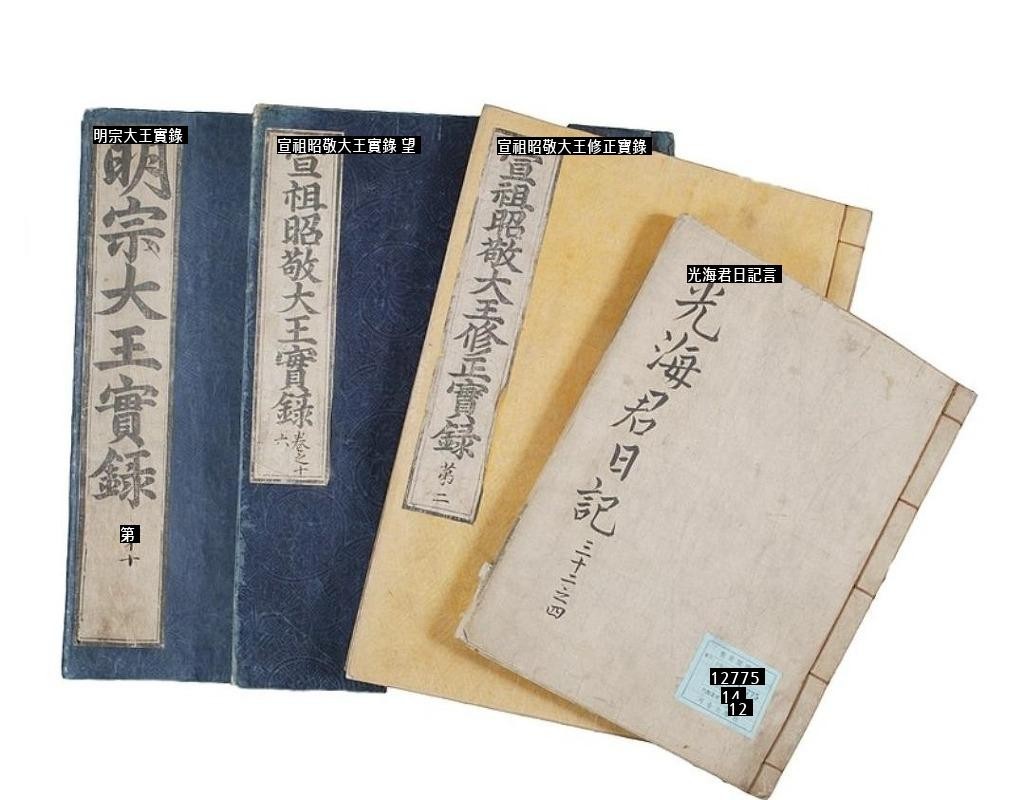 明宗大王實錄
明宗大王實錄
第
十
宣祖昭敬大王實錄 望
宣祖昭敬大王實錄
卷之十
六
宣祖昭敬大王修正寶錄
宣祖昭敬大王修正實錄
第二
光海君日記言
光海君日記
三十二之四
12775
14
12